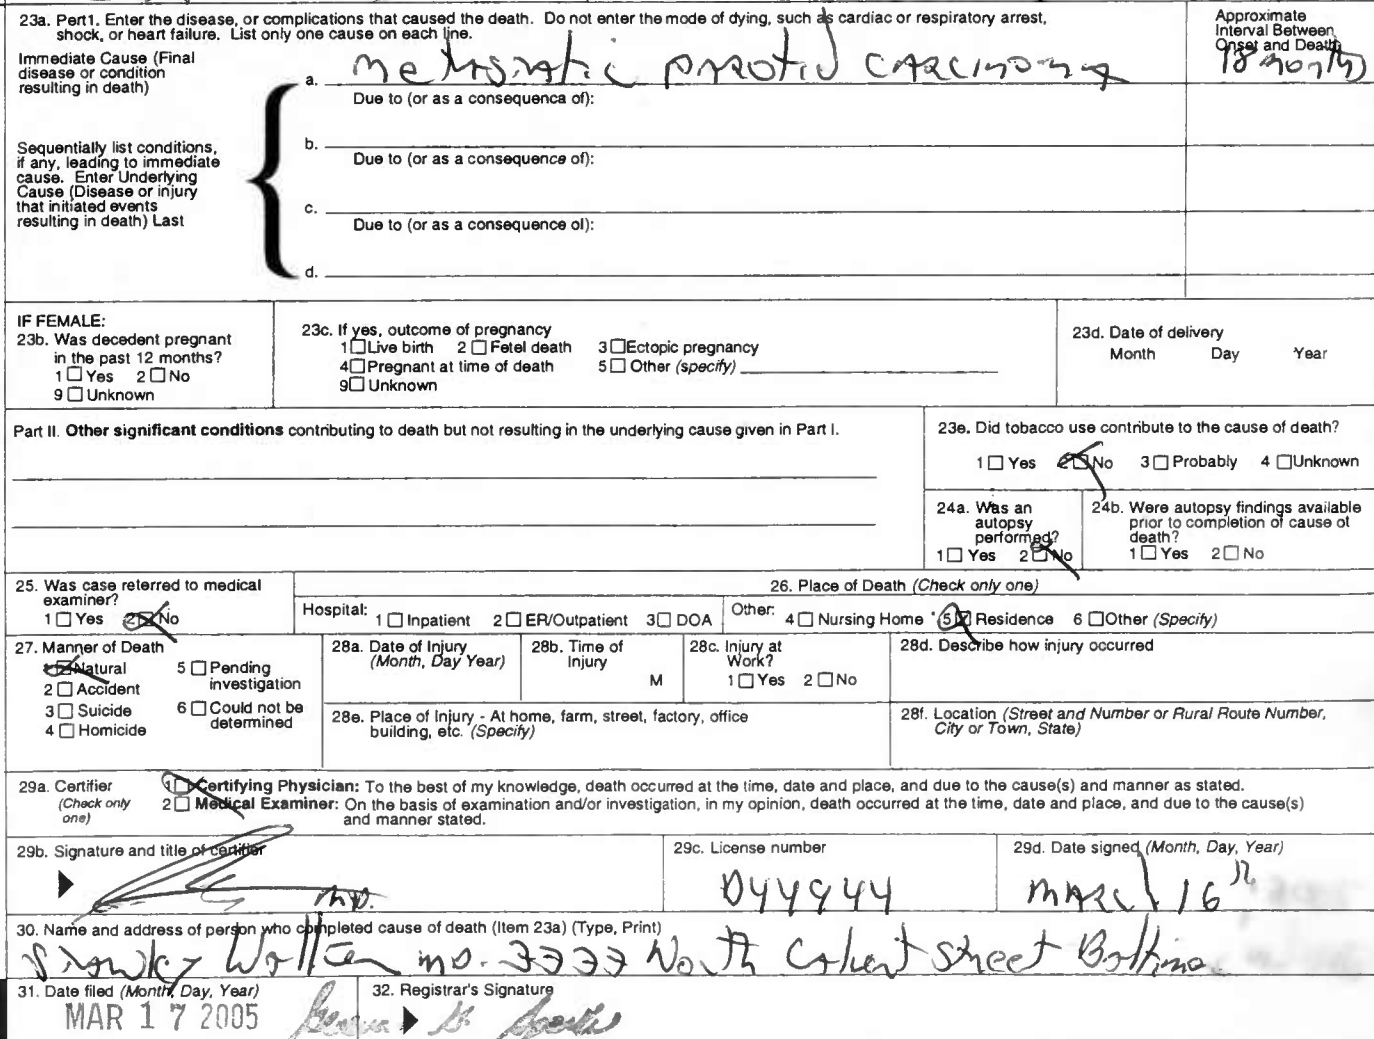 23a. Pert1. Enter the disease, or complications that caused the death. Do not enter the mode of dying, such as cardiac or respiratory arrest,
shock, or heart failure. List only one cause on each line.
Approximate
Interval Between
Onset and Death
Immediate Cause (Final
disease or condition
resulting in death)
a. metastatic parotid carcinoma
18 months
Due to (or as a consequenca of):
Sequentially list conditions,
if any, leading to immediate
cause. Enter Underlying
Cause (Disease or injury
that initiated events
resulting in death) Last
b.
Due to (or as a consequence of):
c.
Due to (or as a consequence of):
d.
IF FEMALE:
23b. Was decedent pregnant
in the past 12 months?
1 Yes 2 No
9 Unknown
23c. If yes, outcome of pregnancy
1 Live birth 2 Fetel death 3 Ectopic pregnancy
4 Pregnant at time of death 5 Other (specify)
9 Unknown
23d. Date of delivery
Month Day Year
Part II. Other significant conditions contributing to death but not resulting in the underlying cause given in Part I.
23e. Did tobacco use contribute to the cause of death?
1 Yes 2 No 3 Probably 4 Unknown
24a. Was an
autopsy
performed?
1 Yes 2 No
24b. Were autopsy findings available
prior to completion of cause of
death?
1 Yes 2 No
25. Was case referred to medical
examiner?
1 Yes 2 No
26. Place of Death (Check only one)
Hospital: 1 Inpatient 2 ER/Outpatient 3 DOA
Other: 4 Nursing Home 5 Residence 6 Other (Specify)
27. Manner of Death
1 Natural 5 Pending
investigation
2 Accident
3 Suicide 6 Could not be
determined
4 Homicide
28a. Date of Injury
(Month, Day Year)
28b. Time of
Injury
M
28c. Injury at
Work?
1 Yes 2 No
28d. Describe how injury occurred
28e. Place of Injury - At home, farm, street, factory, office
building, etc. (Specify)
28f. Location (Street and Number or Rural Route Number,
City or Town, State)
29a. Certifier
(Check only
one)
1 Certifying Physician: To the best of my knowledge, death occurred at the time, date and place, and due to the cause(s) and manner as stated.
2 Medical Examiner: On the basis of examination and/or investigation, in my opinion, death occurred at the time, date and place, and due to the cause(s)
and manner stated.
29b. Signature and title of certifier
MD.
29c. License number
D44944
29d. Date signed (Month, Day, Year)
March 16
30. Name and address of person who completed cause of death (Item 23a) (Type, Print)
MD. 3333 North Calvert Street
31. Date filed (Month, Day, Year)
MAR 17 2005
32. Registrar's Signature